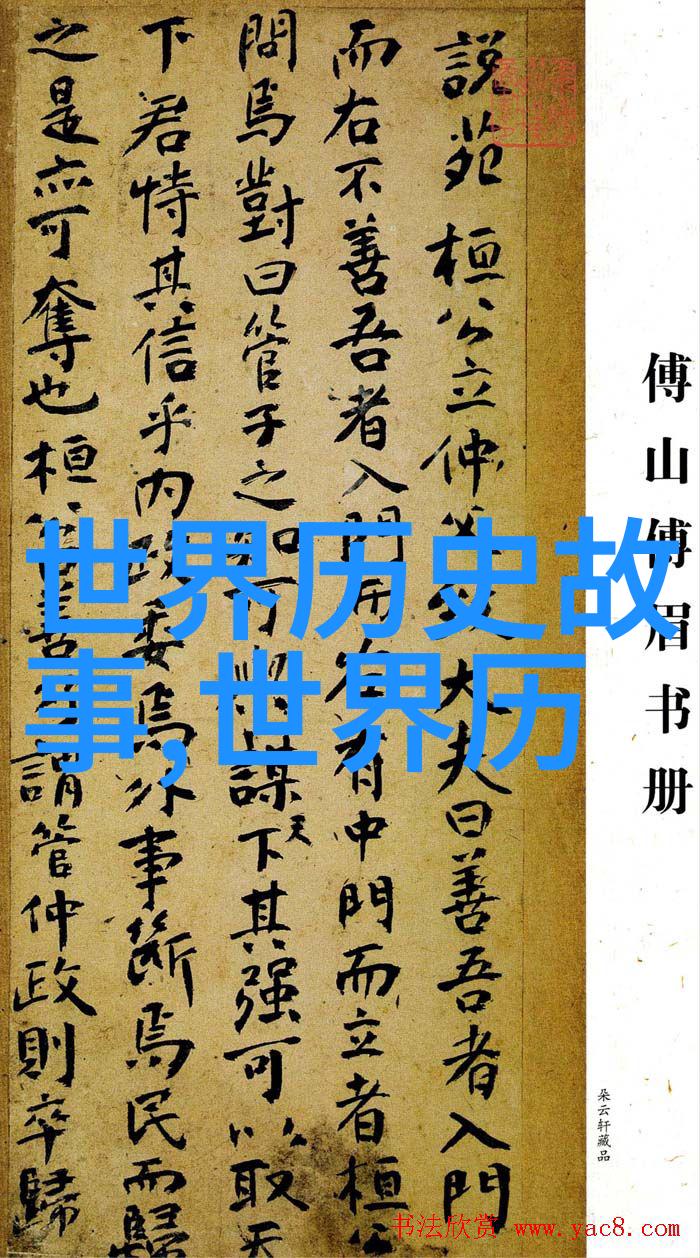 世界历史故
事,世界历
說苑 桓公立仲父大夫曰善吾者入門
而右不善吾者入門而左有中門而立者桓公
問焉對曰管子之知可與謀天下其强可以取天
下君恃其信乎內政委焉外事斷焉民而歸
之是亦可奪也桓善謂管仲政則卒歸
傅山傅眉书册
朵云轩藏品
书法欣赏 www.yac8.com